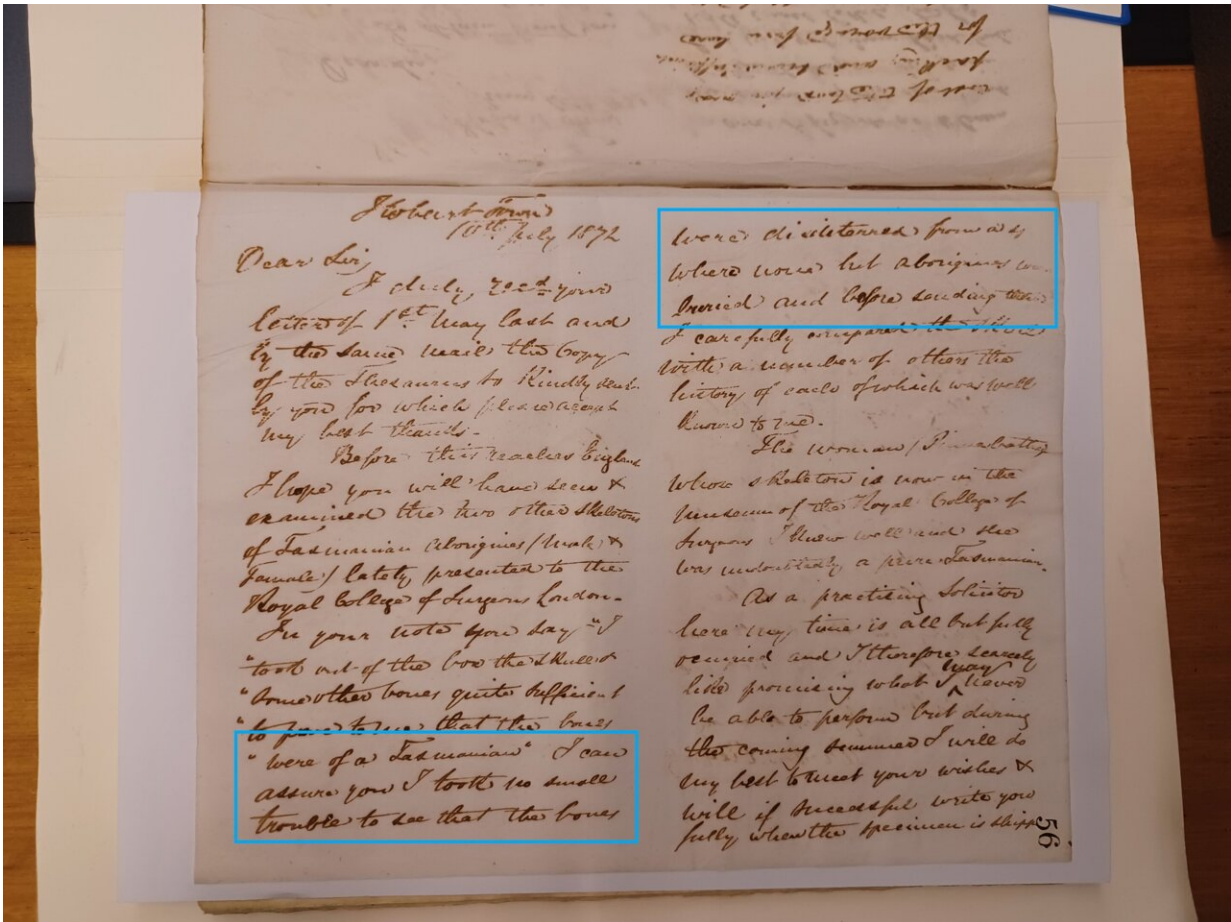 Hobart Town
10th July 1872
Dear Sir,
I duly recd your
letter of 1st May last and
by the same mail the Copy
of the Thesaurus so Kindly sent
by you for which please accept
my best thanks.
Before this reaches England
I hope you will have seen &
examined the two other skeletons
of Tasmanian Aborigines / Male &
Female / lately presented to the
Royal College of Surgeons London.
In your note you say "I
"took out of the box the skull &
"some other bones quite sufficient
"to prove to me that the bones
"were of a Tasmanian" I can
assure you I took no small
trouble to see that the bones
were disinterred from a
where none but aborigines
buried and before sending them
I carefully compared the skull
with a number of others the
history of each of which was well
known to me.
The woman /
whose skeleton is now in the
Museum of the Royal College of
Surgeons I knew well and she
was undoubtedly a pure Tasmanian.
As a practising Solicitor
here my time is all but fully
occupied and I therefore scarcely
like promising what I may never
be able to perform but during
the coming summer I will do
my best to meet your wishes &
will if successful write you
fully when the specimen is
56
for the voyage from here